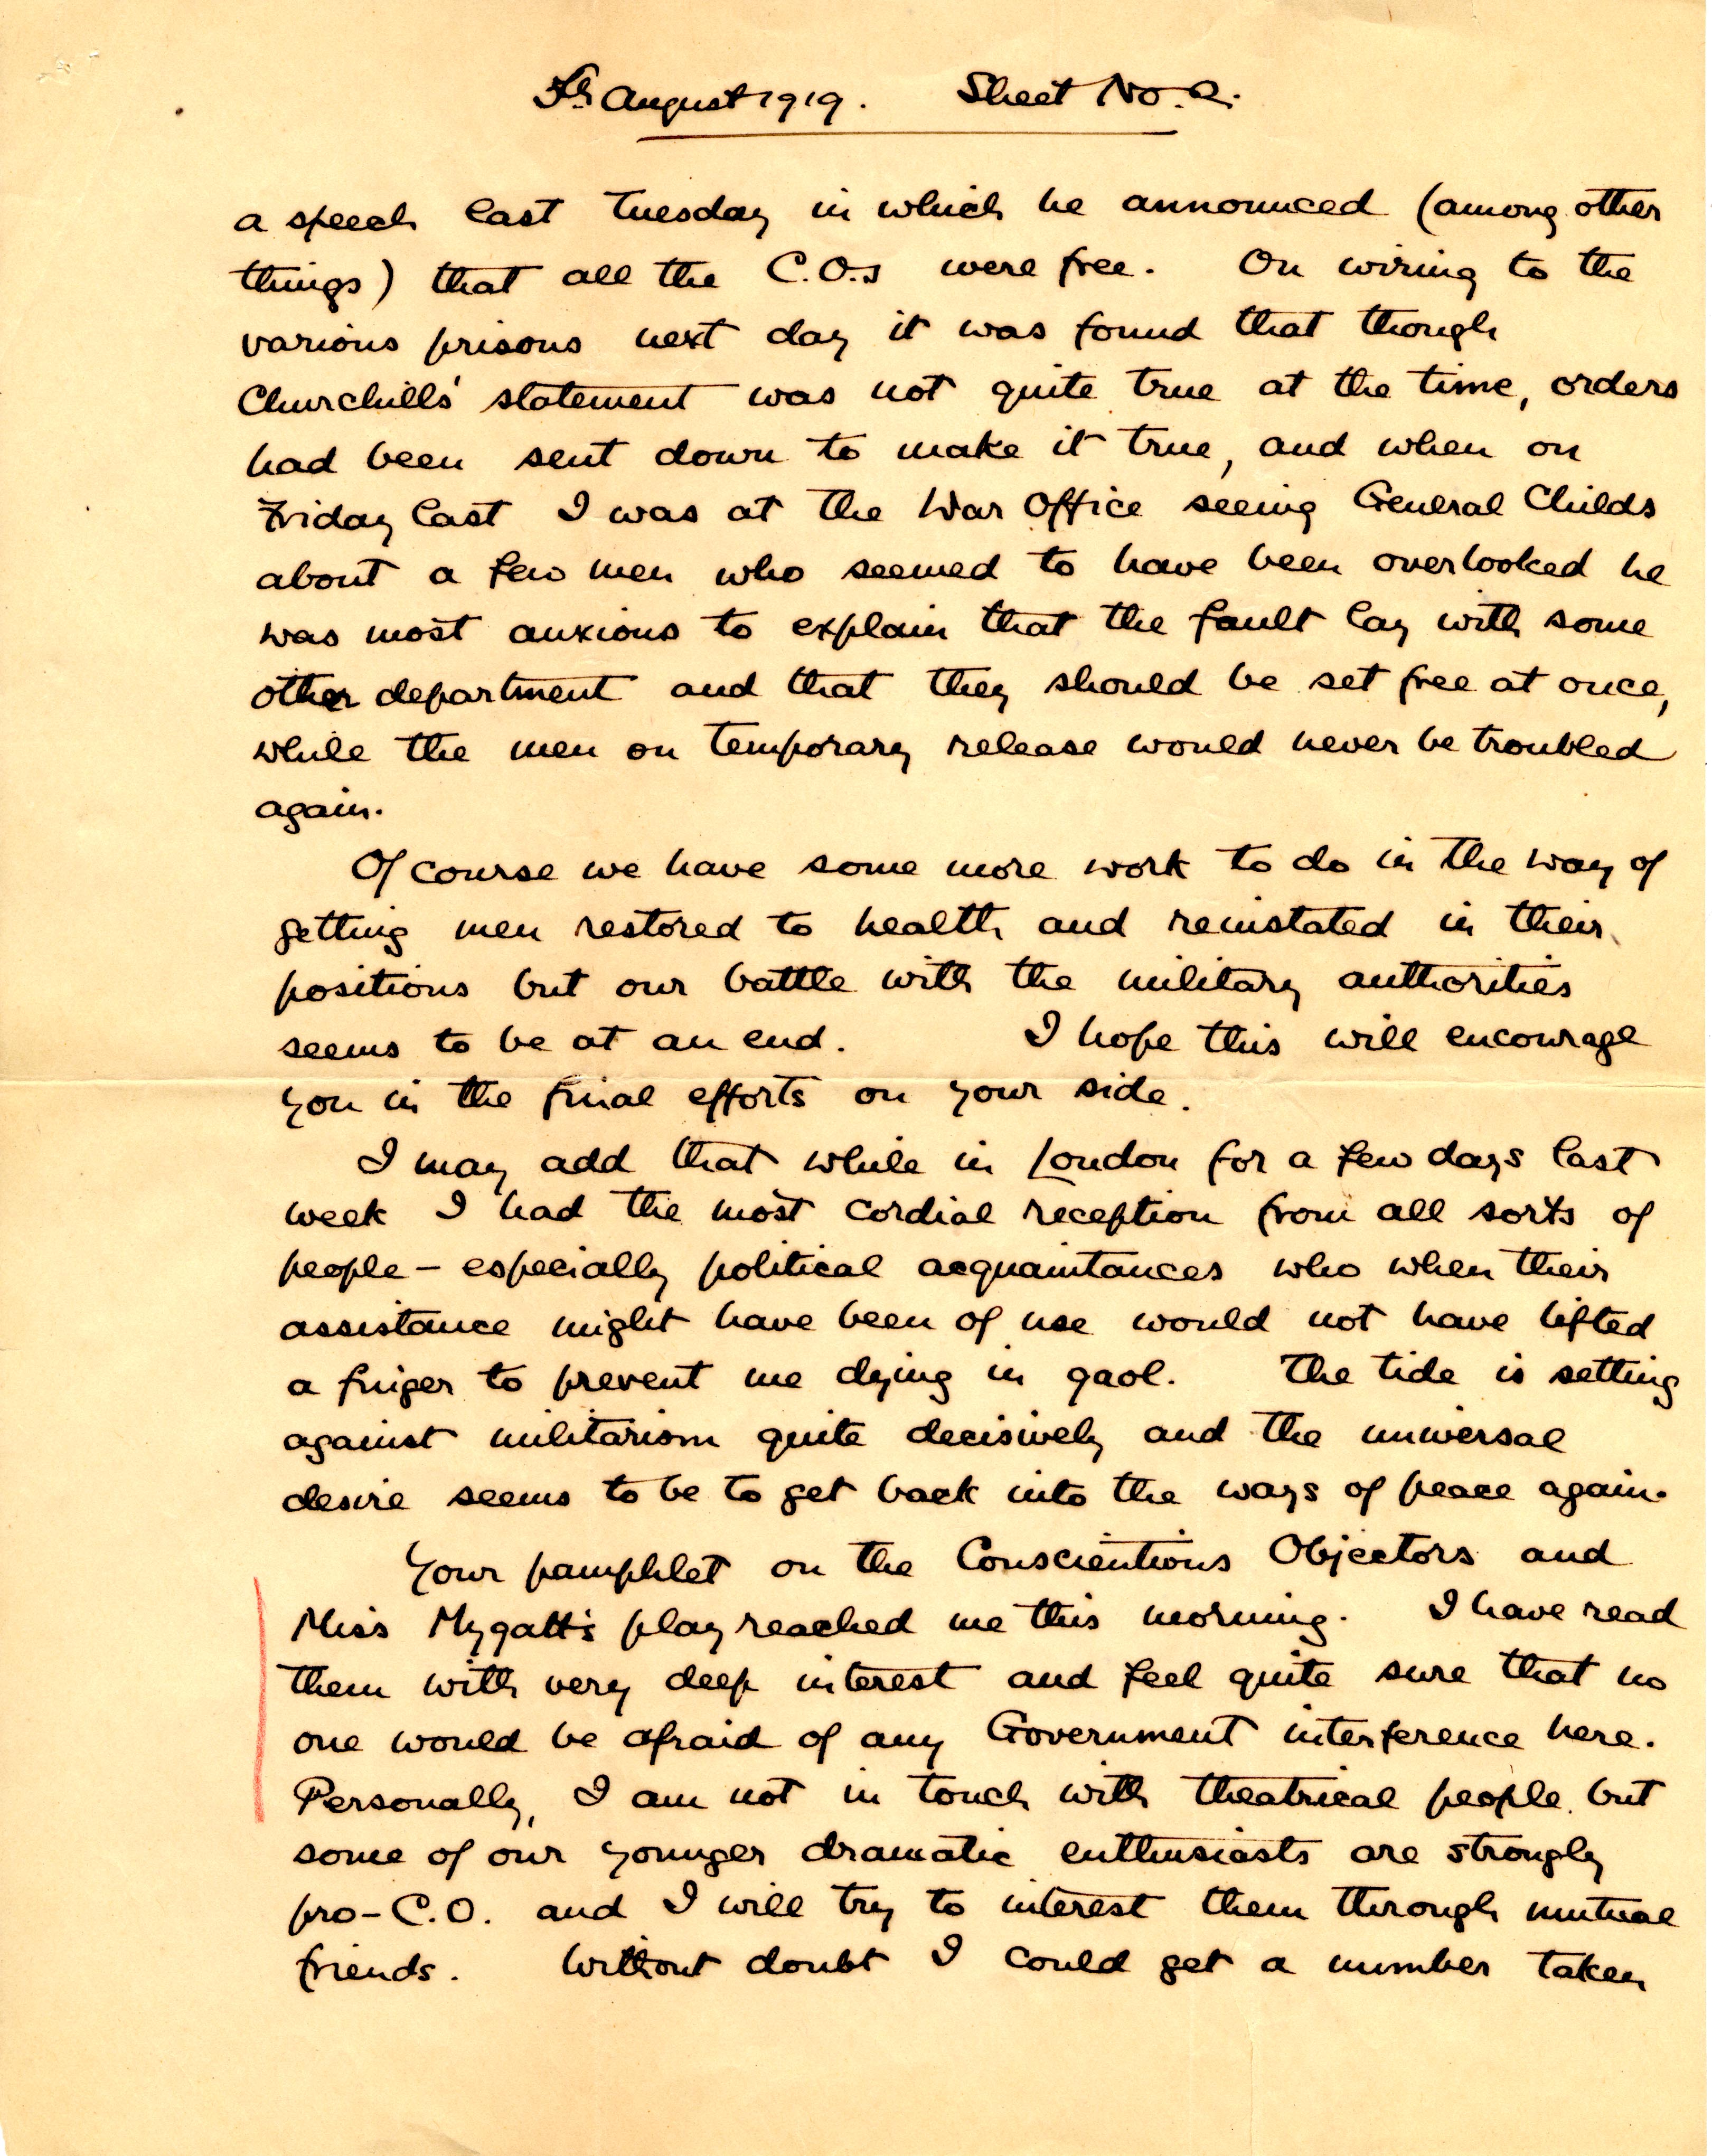 5th August 1919. Sheet No. 2.
a speech last Tuesday in which he announced (among other
things) that all the C.O.s were free. On wiring to the
various prisons next day it was found that though
Churchills' statement was not quite true at the time, orders
had been sent down to make it true, and when on
Friday last I was at the War Office seeing General Childs
about a few men who seemed to have been overlooked he
was most anxious to explain that the fault lay with some
other department and that they should be set free at once,
while the men on temporary release would never be troubled
again.
Of course we have some more work to do in the way of
getting men restored to health and reinstated in their
positions but our battle with the military authorities
seems to be at an end. I hope this will encourage
you in the final efforts on your side.
I may add that while in London for a few days last
week I had the most cordial reception from all sorts of
people - especially political acquaintances who when their
assistance might have been of use would not have lifted
a finger to prevent me dying in gaol. The tide is setting
against militarism quite decisively and the universal
desire seems to be to get back into the ways of peace again.
Your pamphlet on the Conscientious Objectors and
Miss Mygatt's play reached me this morning. I have read
them with very deep interest and feel quite sure that no
one would be afraid of any Government interference here.
Personally, I am not in touch with theatrical people but
some of our younger dramatic enthusiasts are strongly
pro-C.O. and I will try to interest them through mutual
friends. Without doubt I could get a number taken